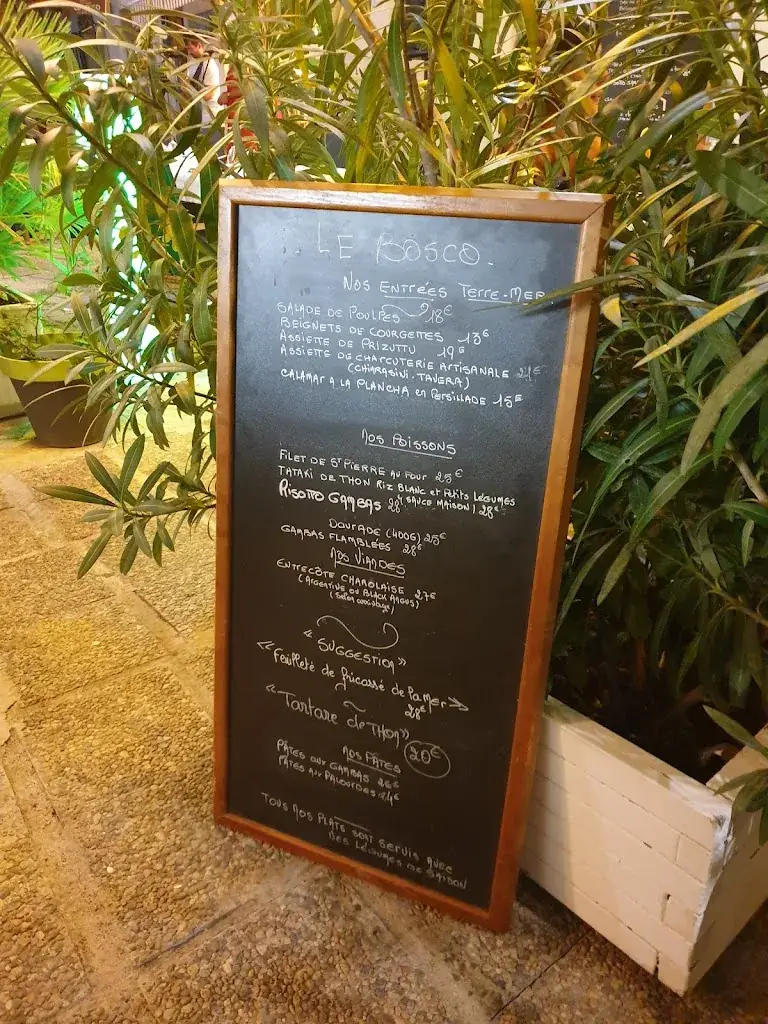 LE BOSCO.
NOS ENTRÉES TERRE-MER
SALADE DE POULPES 18€
BEIGNETS DE COURGETTES 13€
ASSIETTE DE PRIZUTTU 19€
ASSIETTE DE CHARCUTERIE ARTISANALE 21€
(CHIARASINI.TAVERA)
CALAMAR A LA PLANCHA en Persillade 15€
Nos Poissons
FILET DE ST PIERRE AU FOUR 25€
TATAKI DE THON RIZ BLANC et Petits Légumes
(SAUCE MAISON) 28€
RISOTTO GAMBAS 28€
DOURADE (400G) 25€
GAMBAS FLAMBLÉES 28€
NOS VIANDES
ENTRECÔTE CHAROLAISE 27€
(ARGENTINE OU BLACK ANGUS)
(Selon arrivage)
"SUGGESTION"
<<Feuilleté de fricassé de la Mer>>
28€
"Tartare de THON" 20€
NOS PÂTES
PÂTES aux GAMBAS 26€
PÂTES AUX PALOURDES 24€
TOUS NOS PLATS SONT SERVIS AVEC
DES LÉGUMES DE SAISON